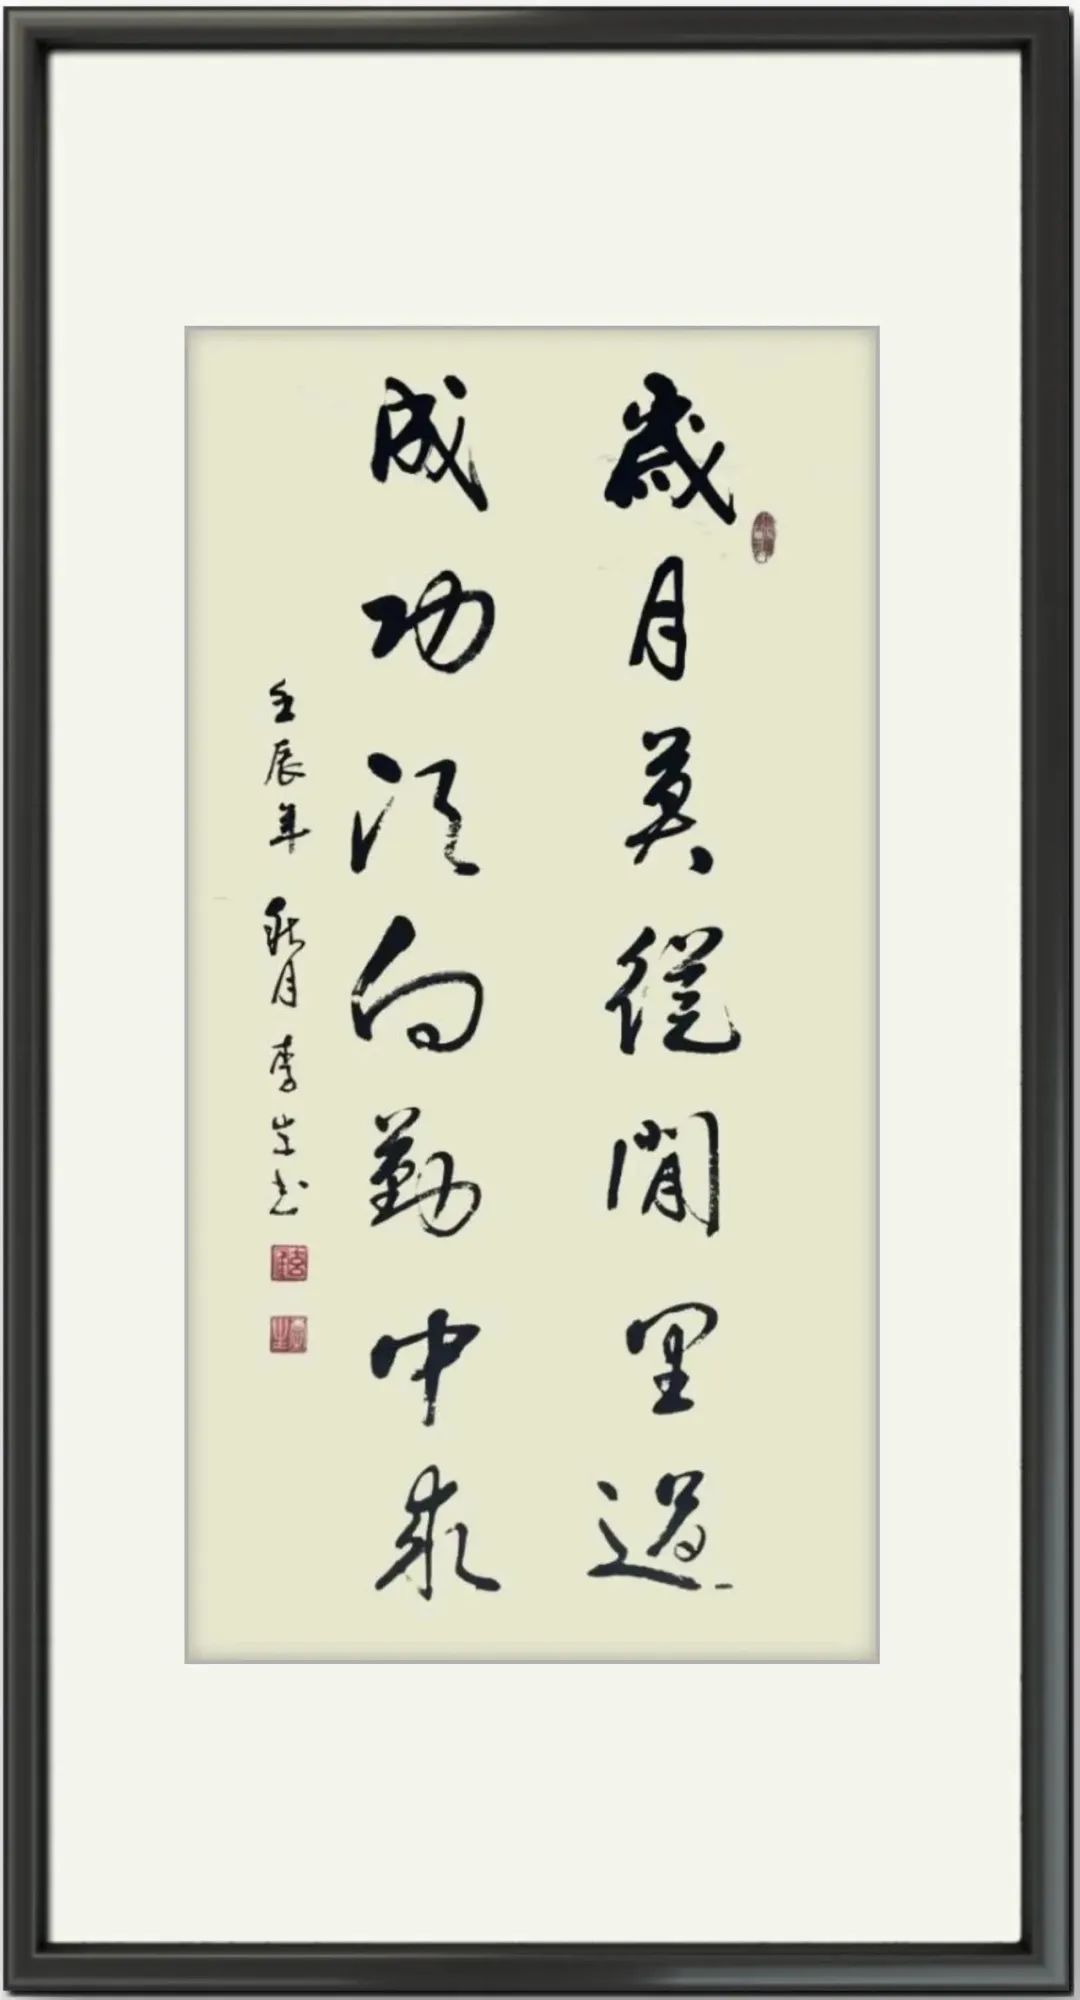 歲月莫從閒里過
成功須向勤中求
壬辰年 秋月 李